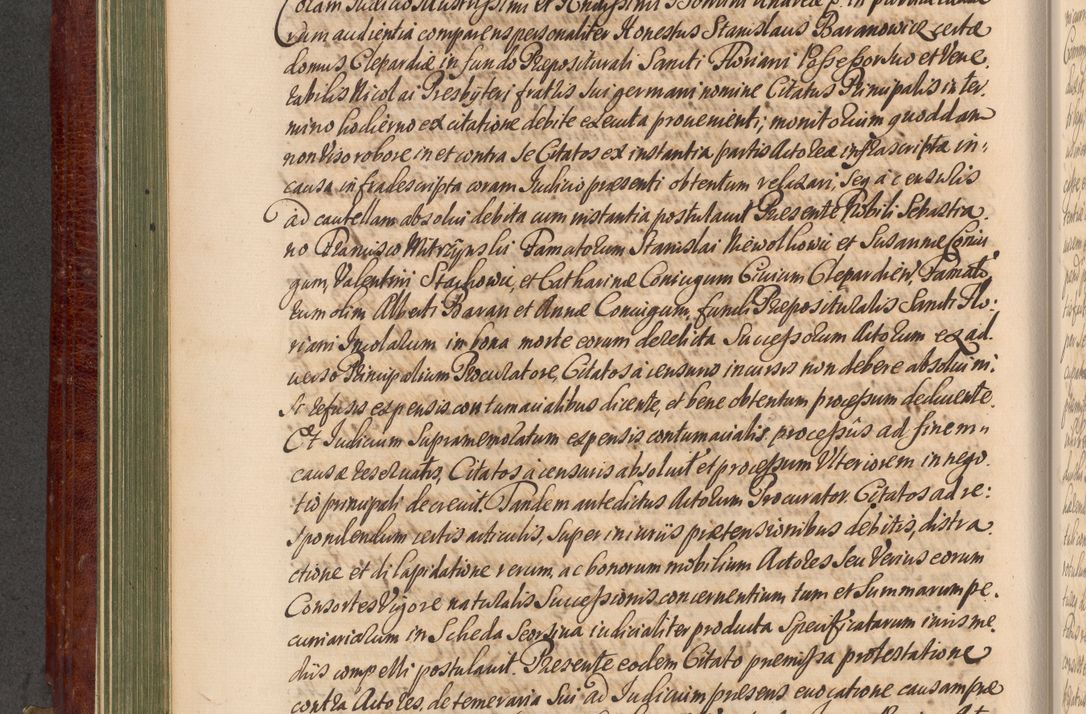 Coram Judicio Illustrissimi et Rndissimi Domini Andreæ
rum audientia comparens personaliter Honestus Stanislaus Baranowicz certæ
domus Clepardiæ in fundo Præpositurali Sancti Floriani Possessor suo et Vene,
rabilis Nicolai Presbyteri fratris sui germani nomine Citatus Principalis in ter,
mino hodierno ex citatione debite exæcuta provenienti; monitorium quoddam
non viso robore in et contra se Citatos ex instantia partis Actoreæ infrascriptæ in,
causa infradescripta coram Judicio præsenti obtentum relaxari, seq a censuris
ad cautellam absolui debita cum instantia postulauit Præsente Nobili Sebastia,
no Francisco Mitrzynski Famatorum Stanislai Niewolkowic et Susannæ Coniu,
gum, Valentini Stachowic, et Catharinæ Coniugum Civium Clepardien, Famato,
rum olim Alberti Baran et Annæ Coniugum, fundi Præposituralis Sancti Flo:
riani Incolarum in bona morte eorum derelicta Successorum Actorum ex ad,
uerso Principalium Procuratore, Citatos a censuris incursis non debere absolui ni,
si refusis expensis contumacialibus dicente, et bene obtentum processum deducente.
Et Judicium supramemoratum expensis contumacialis processus ad finem
causæ reseruatis, Citatos a censuris absoluit et processum Ulteriorem in nego,
tio principali decreuit. Tandem antedictus Actorum Procurator Citatos ad re:
spondendum certis articulis, super iniuriis prætensionibus debitis, distra,
ctione et dilapidatione rerum, ac bonorum mobilium Actores seu Verius eorum
Consortes Vigore naturalis Successionis concernentium, tum et Summarum pe,
cuniariarum in Scheda Seorsiva iudicialiter producta Specificatarum iuris me,
diis compelli postulauit. Præsente eodem Citato præmissa protestatione
contra Actores, de temeraria sui ad Judicium præsens euocatione causam præ